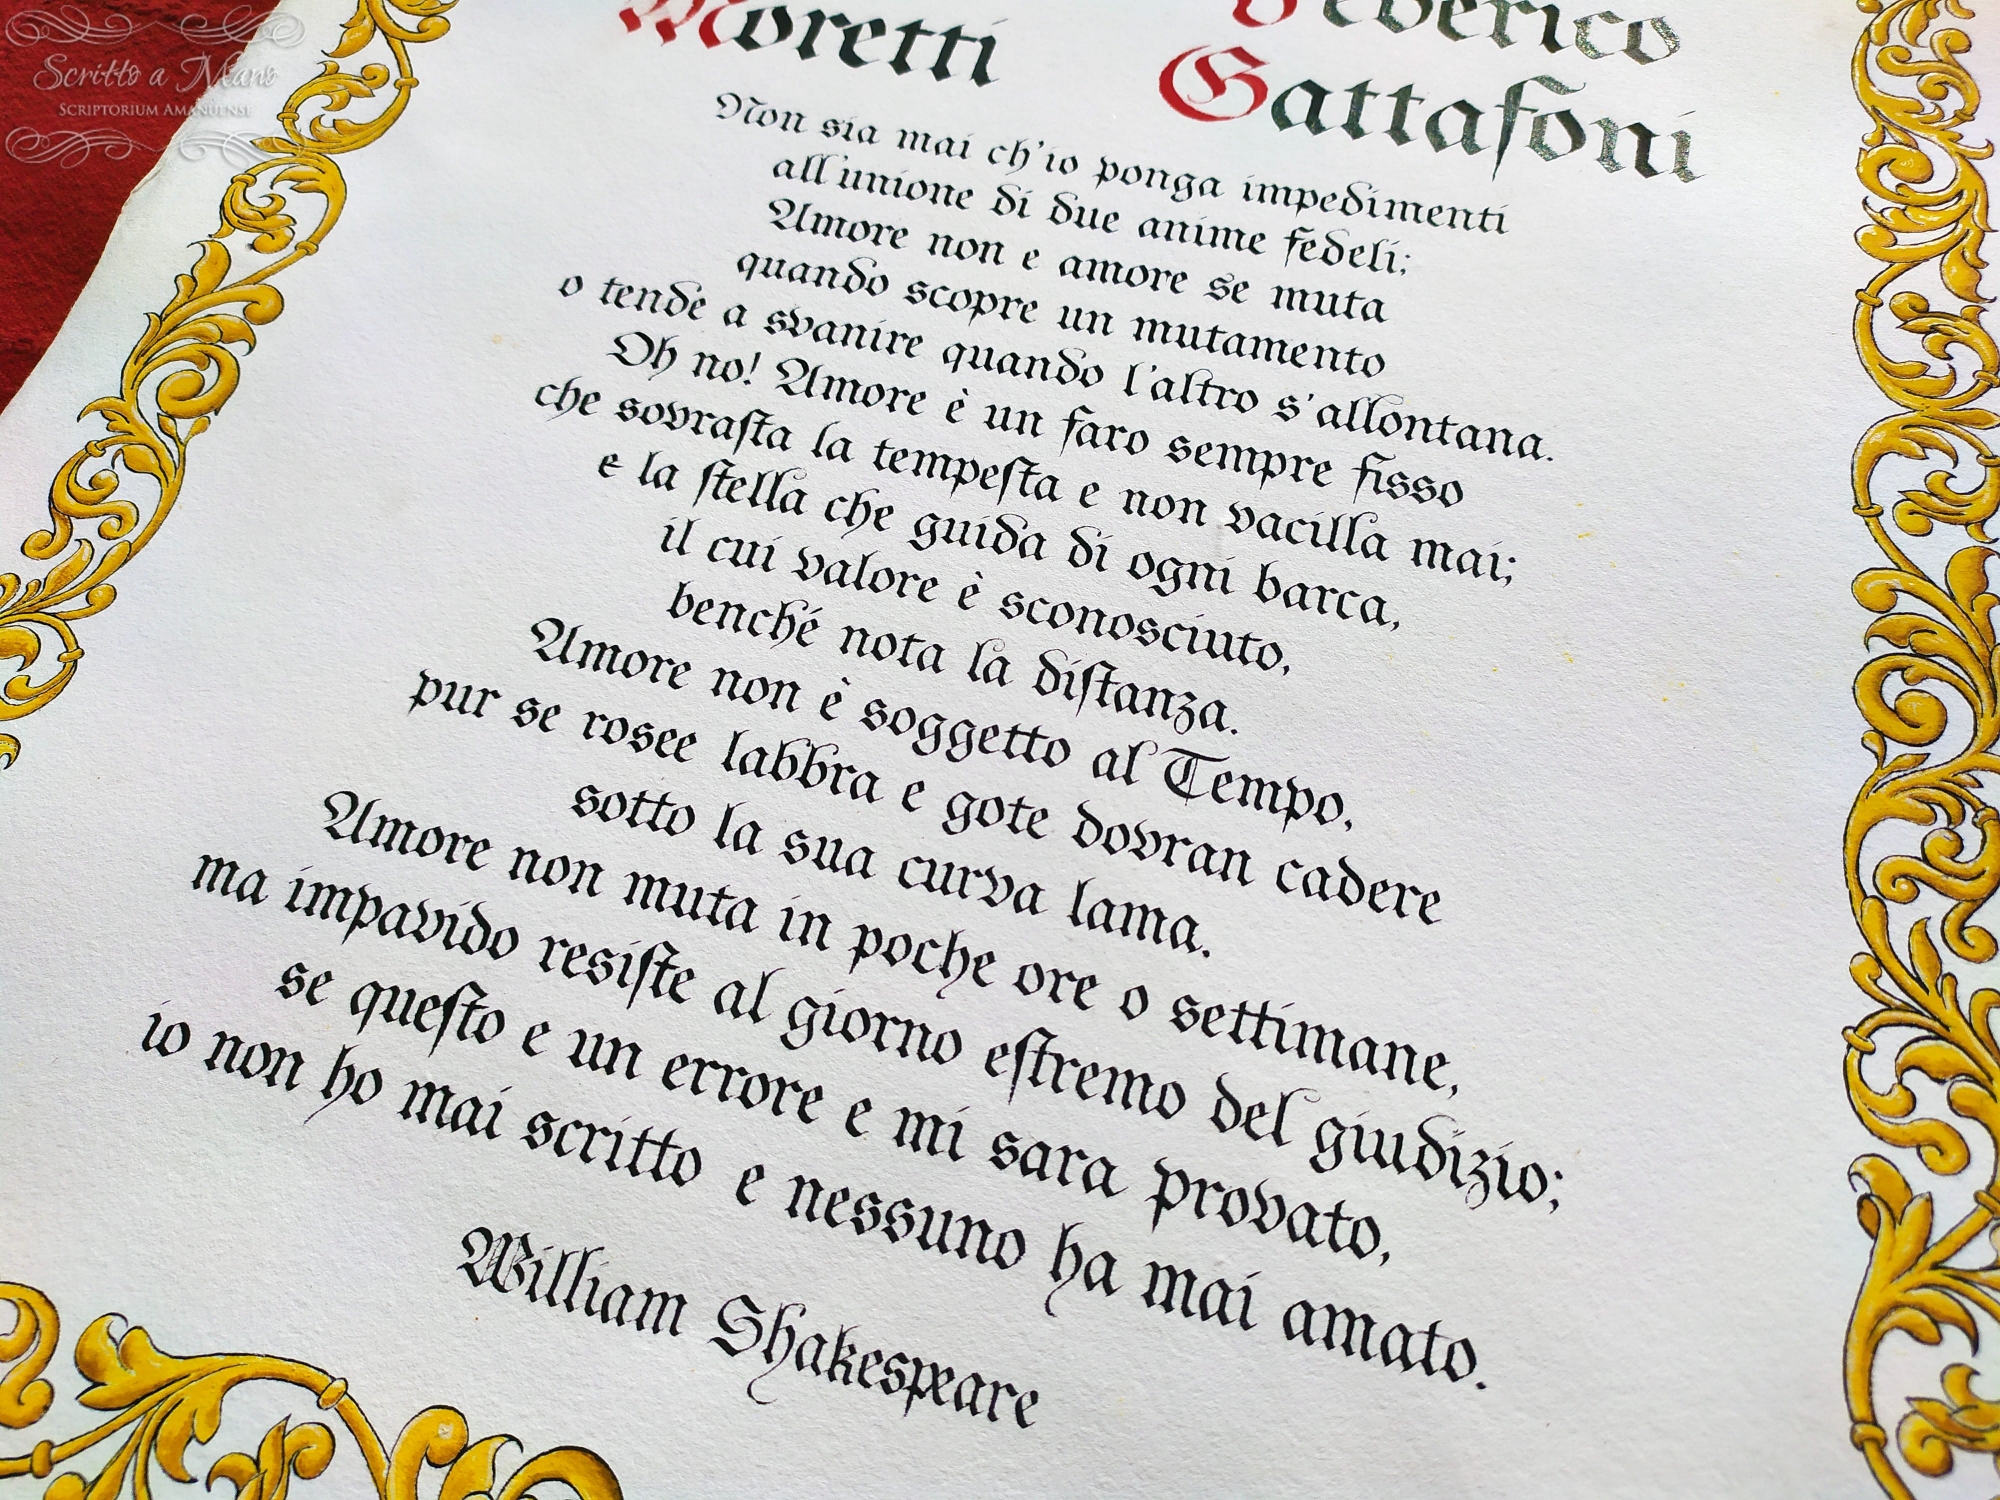 Scritto a Mano
SCRIPTORIUM AMANUENSE
Moretti
Federico
Gattafoni
Non sia mai ch'io ponga impedimenti
all'unione di due anime fedeli;
Amore non e amore se muta
quando scopre un mutamento
o tende a svanire quando l'altro s'allontana.
Oh no! Amore è un faro sempre fisso
che sovrasta la tempesta e non vacilla mai;
e la stella che guida di ogni barca,
il cui valore è sconosciuto,
benché nota la distanza.
Amore non è soggetto al Tempo,
pur se rosee labbra e gote dovran cadere
sotto la sua curva lama.
Amore non muta in poche ore o settimane,
ma impavido resiste al giorno estremo del giudizio;
se questo e un errore e mi sara provato,
io non ho mai scritto e nessuno ha mai amato.
William Shakespeare